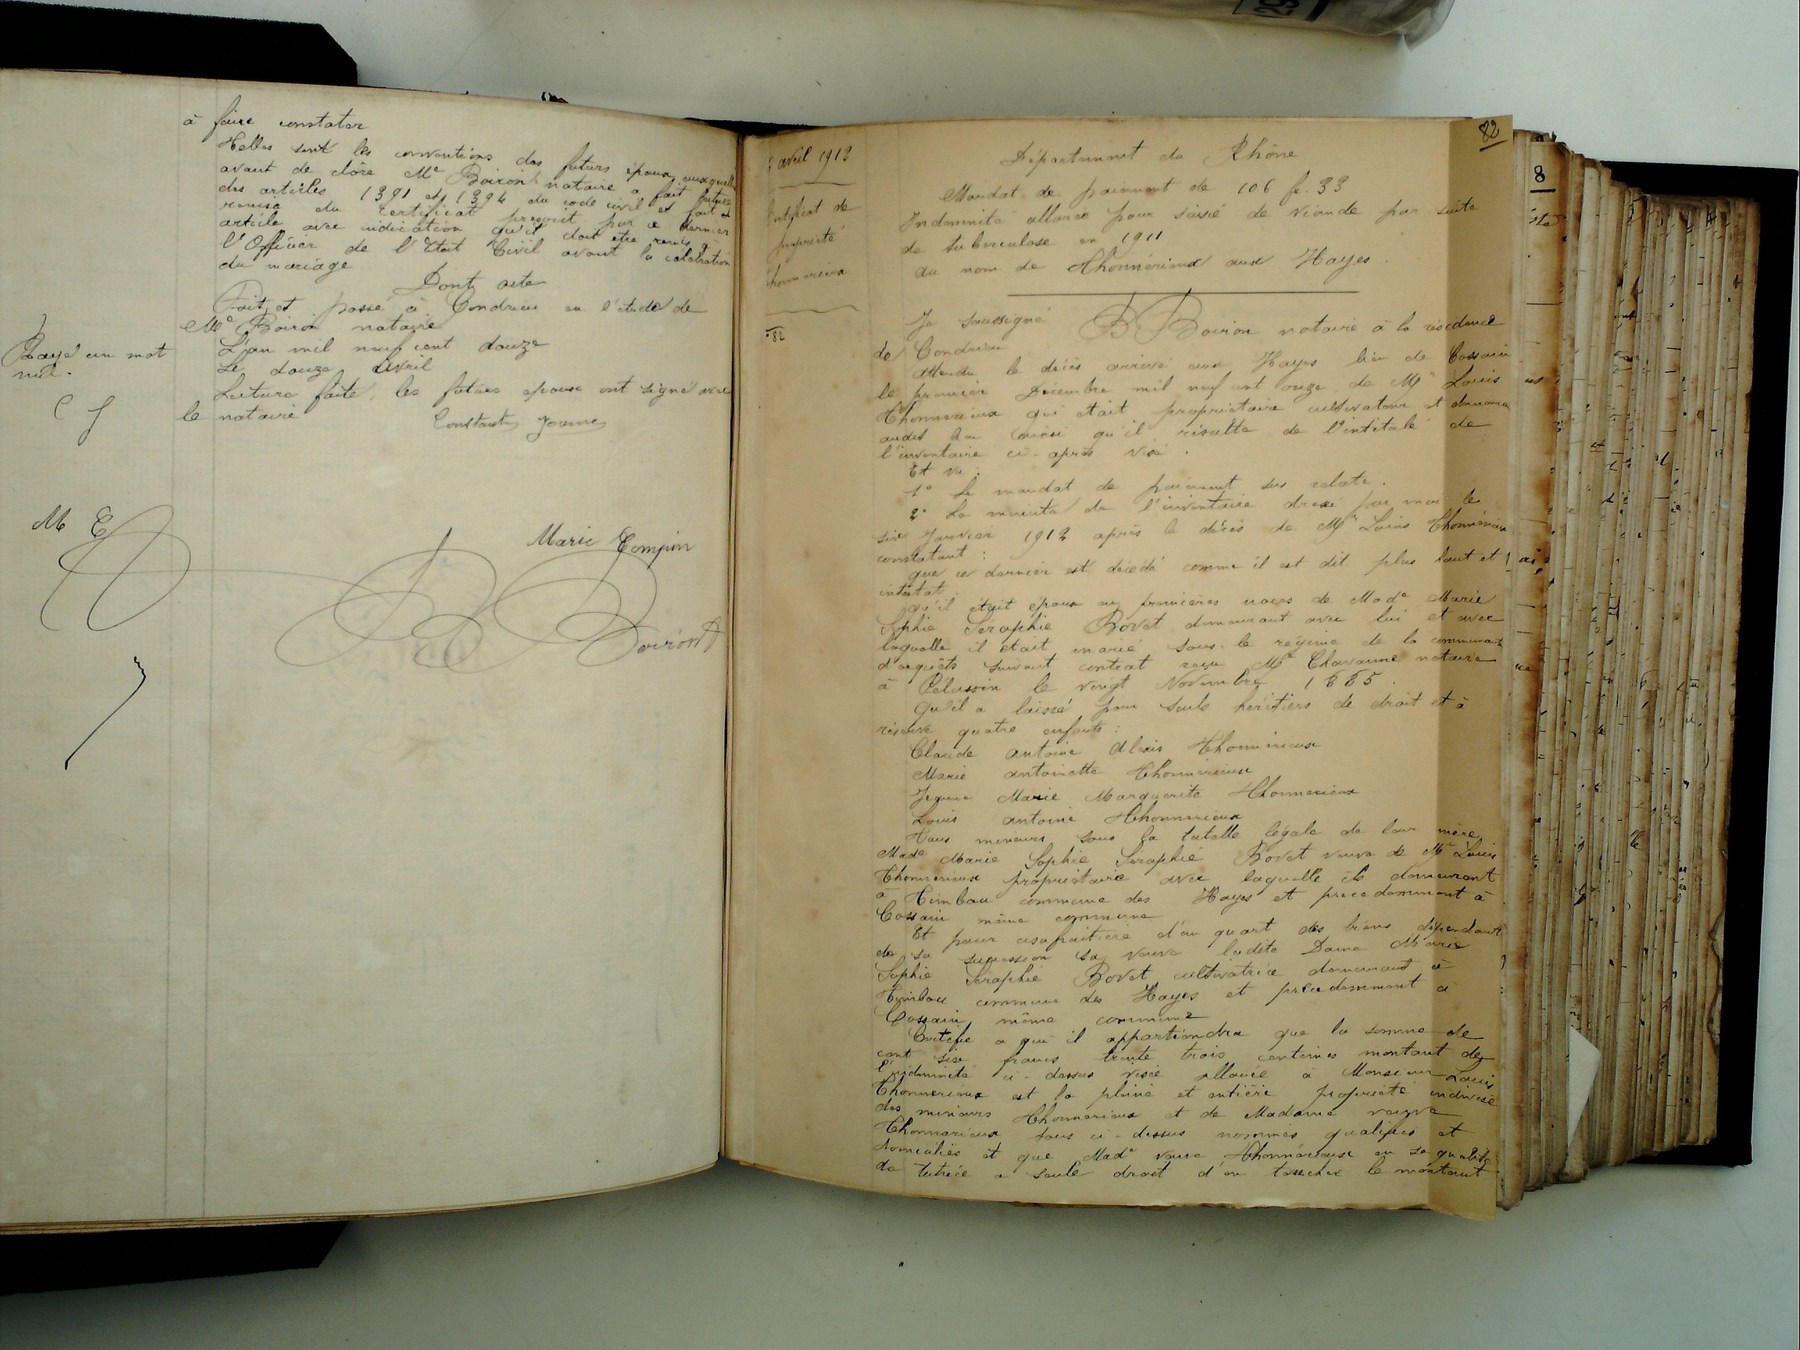 à faire constater
Telles sont les conventions des futurs époux auxquelles
avant de clore Me Boiron notaire a fait lecture
des articles 1391 et 1394 du code civil et fait
remise du certificat prescrit par ce dernier
article avec indication qu'il doit être remis à
l'Officier de l'Etat Civil avant la célébration
du mariage
Dont acte
Fait et passé à Condrieu en l'étude de
Me Boiron notaire
L'an mil neuf cent douze
Le douze Avril
Lecture faite, les futurs époux ont signé avec
le notaire
Rayé un mot
nul.
C J
Constant Jeanne
M C
Marie Compin
B Boiron
82
avril 1912
de
propriété
Thonnerieux
82
Département du Rhône
Mandat de paiement de 106 f. 33
Indemnité allouée pour saisie de viande par suite
de tuberculose en 1911
au nom de Thonnérieux aux Hayes.
Je soussigné B Boiron notaire à la résidence
de Condrieu
Attendu le décès arrivé aux Hayes lieu de Cossain
le premier Décembre mil neuf cent onze de Mr Louis
Thonnerieux qui était propriétaire cultivateur et demeurant
audit lieu ainsi qu'il résulte de l'intitulé de
l'inventaire ci-après visé.
Et vu :
1° Le mandat de paiement sus relaté.
2° La minute de l'inventaire dressé par moi le
six Janvier 1912 après le décès de Mr Louis Thonnérieux
constatant :
que ce dernier est décédé comme il est dit plus haut et
intestat
qu'il était époux en premières noces de Made Marie
Sophie Séraphie Bovet demeurant avec lui et avec
laquelle il était marié sous le régime de la communauté
d'acquêts suivant contrat reçu Me Chavanne notaire
à Pélussin le vingt Novembre 1885.
Qu'il a laissé pour seuls héritiers de droit et à
réserve quatre enfants :
Claude Antoine Alexis Thonnérieux
Marie Antoinette Thonnérieux
Marie Marguerite Thonnerieux
Louis Antoine Thonnérieux
Tous mineurs sous la tutelle légale de leur mère
Made Marie Sophie Séraphie Bovet veuve de Mr Louis
Thonnerieux propriétaire avec laquelle ils demeurent
à commune des Hayes et précédemment à
Cossain même commune
Et pour usufruitière d'un quart des biens dépendant
de sa succession sa veuve ladite Dame Marie
Sophie Séraphie Bovet cultivatrice demeurant à
commune des Hayes et précédemment à
Cossain même commune
Certifie a qui il appartiendra que la somme de
cent six francs trente trois centimes montant de
l'indemnité ci-dessus visée allouée à Monsieur Louis
Thonnerieux est la pleine et entière propriété indivise
des mineurs Thonnerieux et de Madame veuve
Thonnerieux tous ci-dessus nommés qualifiés et
domiciliés et que Made veuve Thonnérieux en sa qualité
de tutrice a seule droit d'en toucher le montant
8